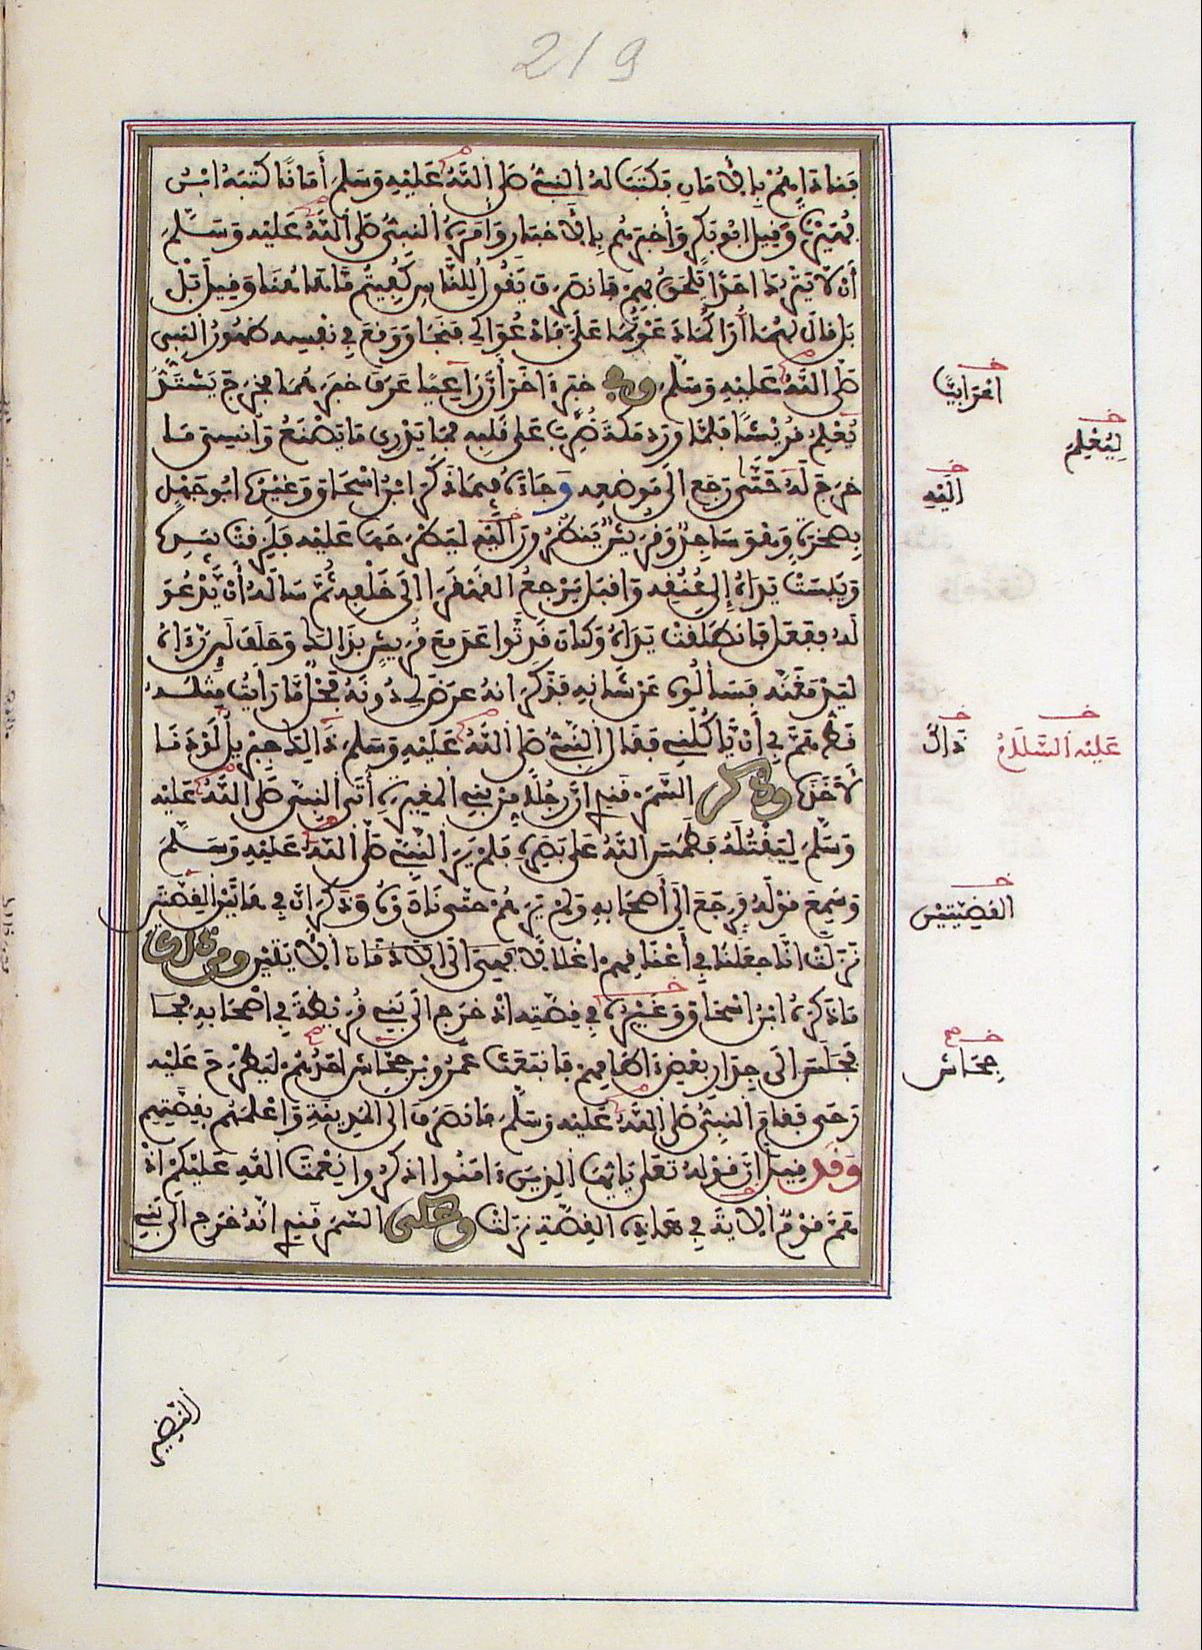 219
فناداهم بالامان فكتب له النبي صلى الله عليه وسلم أمانا كتبه ابن
فهيرة وقيل ابو بكر وأخبرهم بالاخبار وامره النبي صلى الله عليه وسلم
أن لا يترك احدا يلحق بهم فانصرف يقول للناس كفيتم ما هاهنا وقيل بل
بل قال لهما أراكما دعوتما علي فادعوا لي فنجا ووقع في نفسه ظهور النبي
صلى الله عليه وسلم وفي خبر ءاخر أن راعيا عرف خبرهما فخرج يشتد
يعلم قريشا فلما ورد مكة ضرب على قلبه فما يدري ما يصنع وأنسي ما
خرج له حتى رجع الى موضعه وجاءه فيما ذكر ابن اسحاق وغيره ابو جهل
بصخرة وهو ساجد وقريش ينظرون اليه ليطرحها عليه فلزقت بيده
ويبست يداه إلى عنقه واقبل يرجع القهقرا الى خلفه ثم سأله أن يدعو
له ففعل فانطلقت يداه وكان قد تواعد مع قريش بذالك وحلف لئن رءاه
ليدمغنه فسألوه عن شانه فذكر انه عرض لي دونه فحل ما رأيت مثله
قط هم بي أن ياكلني فقال النبي صلى الله عليه وسلم ذالك جبريل لو دنا
لأخذه وذكر السمرقندي ان رجلا من بني المغيرة أتى النبي صلى الله عليه
وسلم ليقتله فطمس الله على بصره فلم ير النبي صلى الله عليه وسلم
وسمع قوله فرجع الى أصحابه ولم يرهم حتى نادوه وذكر ان في هاتين القصتين
نزلت انا جعلنا في أعناقهم اغلالا فهي الى الاذقان الايتين ومن ذلك
ما ذكره ابن اسحاق وغيره في قصته اذ خرج الى بني قريظة في اصحابه فجا
فجلس الى جدار بعض ءاطامهم فانبعث عمرو بن جحاش احدهم ليطرح عليه
رحى فقام النبي صلى الله عليه وسلم فانصرف الى المدينة واعلمهم بقصتهم
وقد قيل ان قوله تعلى يايها الذين ءامنوا اذكروا نعمت الله عليكم اذ
هم قوم الاية في هذه القصة نزلت وحكى السمرقندي انه خرج الى بني
اعرابيا
ليعلم
اليه
ذاك
عليه السلام
القضيتين
جحاش
النضير